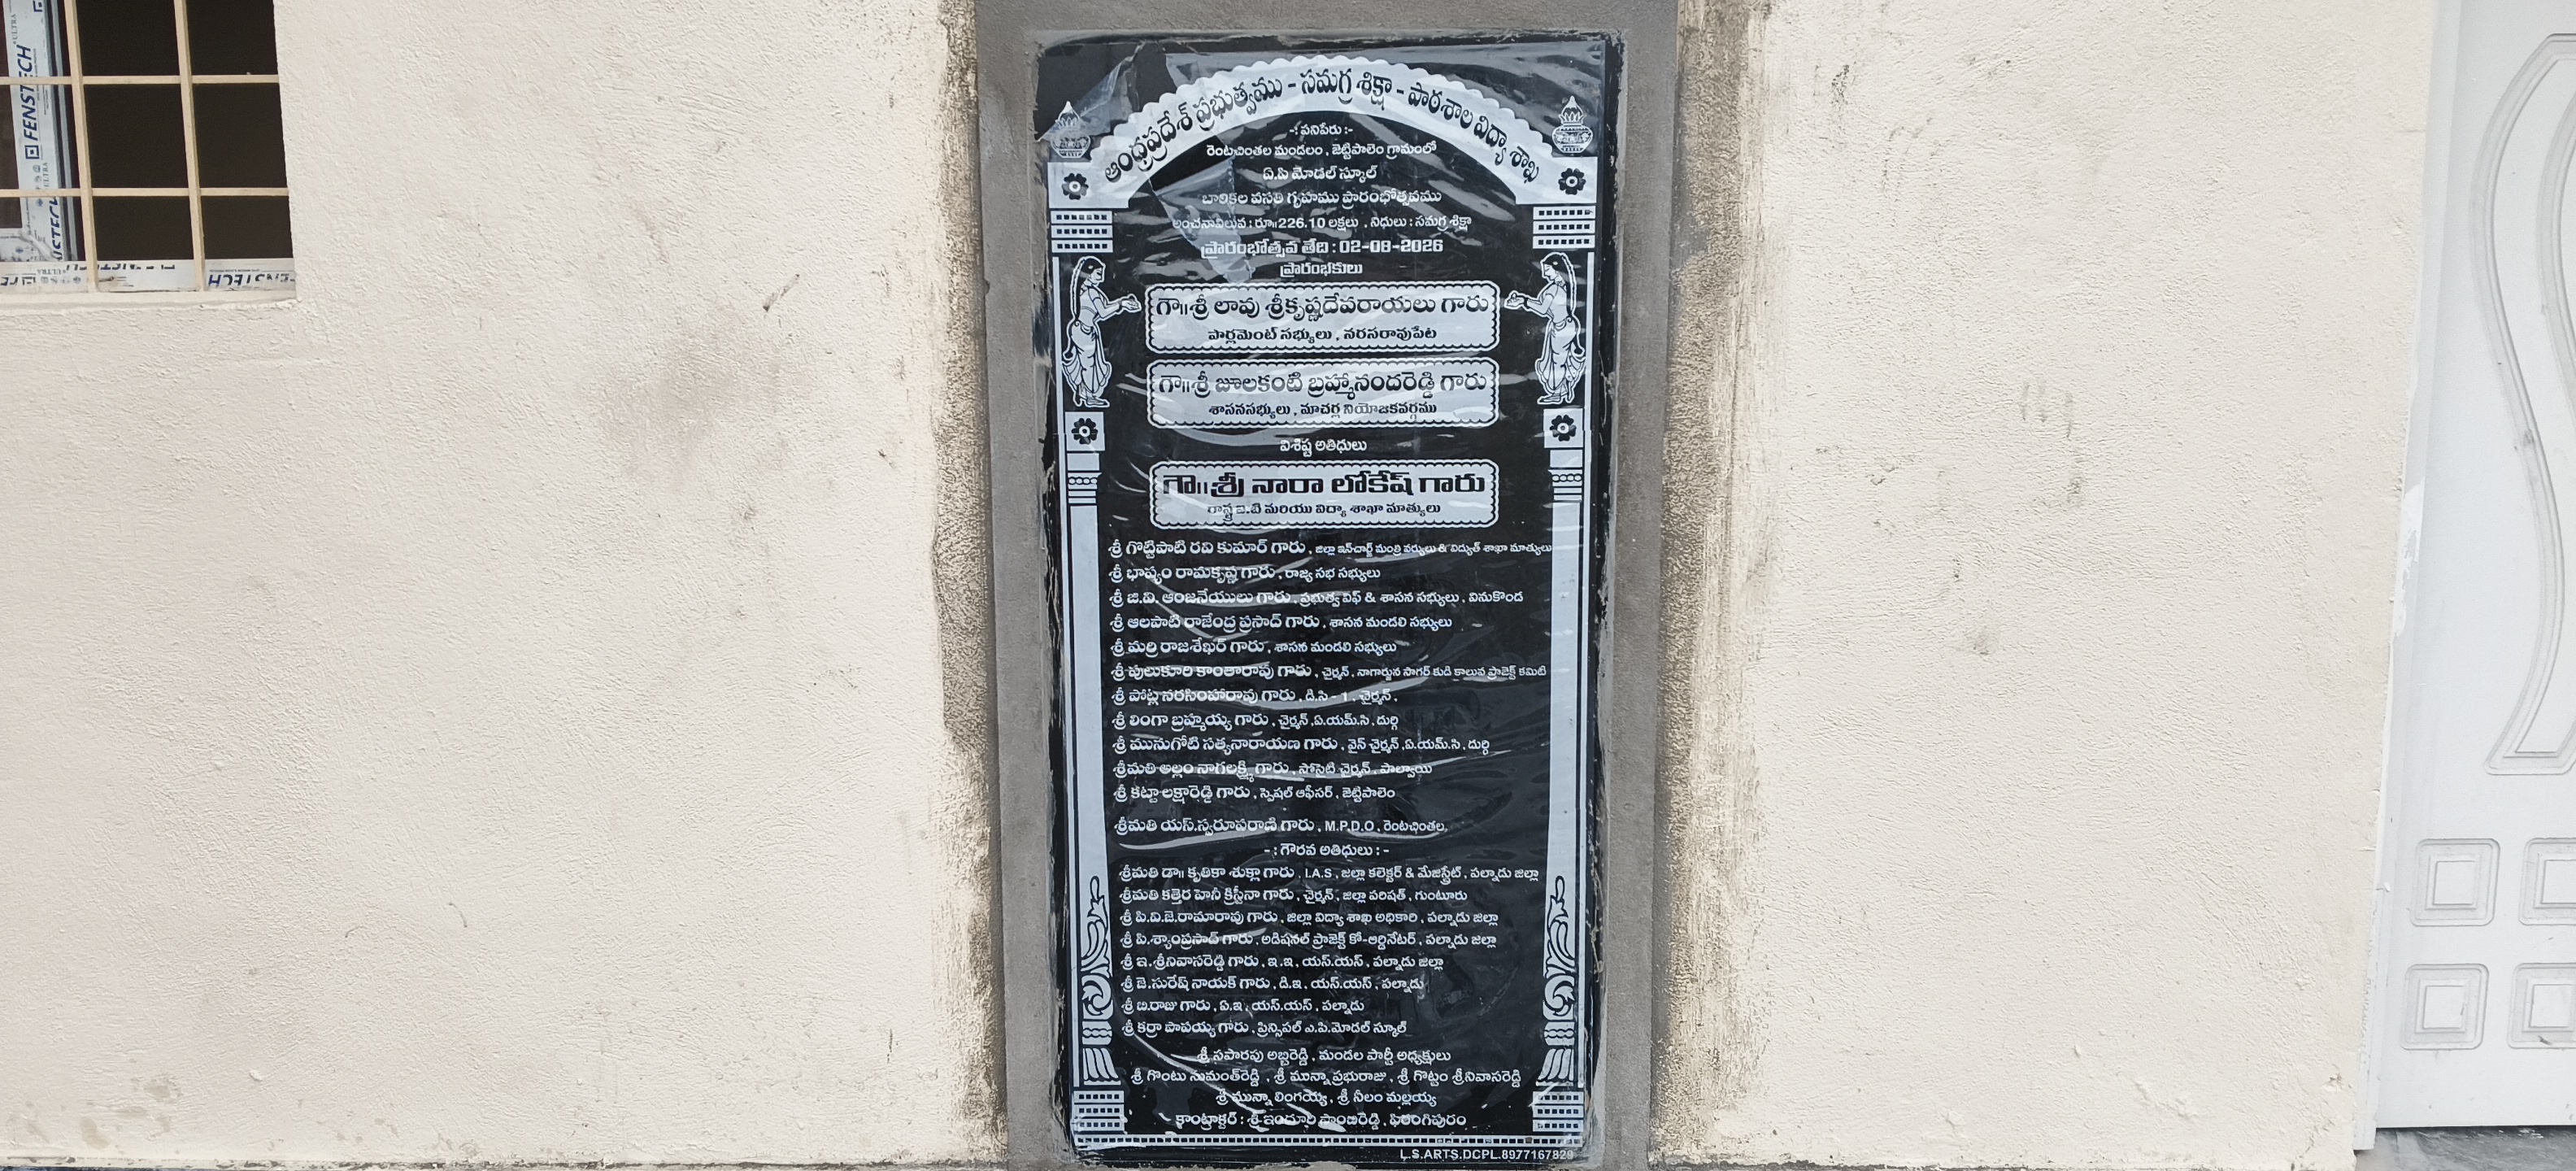 FENSTECH
FENSTECH
ఆంధ్రప్రదేశ్ ప్రభుత్వము - సమగ్ర శిక్షా - పాఠశాల విద్యా శాఖ
-: పనిపేరు :-
రెంటచింతల మండలం, జెట్టిపాలెం గ్రామంలో
ఏ.పి మోడల్ స్కూల్
బాలికల వసతి గృహము ప్రారంభోత్సవము
అంచనావిలువ : రూ॥226.10 లక్షలు , నిధులు : సమగ్ర శిక్షా
ప్రారంభోత్సవ తేది : 02-08-2026
ప్రారంభకులు
గౌ॥శ్రీ లావు శ్రీకృష్ణదేవరాయలు గారు
పార్లమెంట్ సభ్యులు , నరసరావుపేట
గౌ॥శ్రీ జూలకంటి బ్రహ్మానందరెడ్డి గారు
శాసనసభ్యులు , మాచర్ల నియోజకవర్గము
విశిష్ట అతిధులు
గౌ॥ శ్రీ నారా లోకేష్ గారు
రాష్ట్ర ఐ.టి మరియు విద్యా శాఖా మాత్యులు
శ్రీ గొట్టిపాటి రవి కుమార్ గారు , జిల్లా ఇన్‌చార్జ్ మంత్రి వర్యులు & విద్యుత్ శాఖా మాత్యులు
శ్రీ భాష్యం రామకృష్ణ గారు , రాజ్య సభ సభ్యులు
శ్రీ జి.వి. ఆంజనేయులు గారు , ప్రభుత్వ విఫ్ & శాసన సభ్యులు , వినుకొండ
శ్రీ ఆలపాటి రాజేంద్ర ప్రసాద్ గారు , శాసన మండలి సభ్యులు
శ్రీ మర్రి రాజశేఖర్ గారు , శాసన మండలి సభ్యులు
శ్రీ పులుకూరి కాంతారావు గారు , చైర్మన్ , నాగార్జున సాగర్ కుడి కాలువ ప్రాజెక్ట్ కమిటి
శ్రీ పోట్ల నరసింహారావు గారు , డి.సి - 1 , చైర్మన్ ,
శ్రీ లింగా బ్రహ్మయ్య గారు , చైర్మన్ ,ఏ.యమ్.సి , దుర్గి
శ్రీ మునుగోటి సత్యనారాయణ గారు , వైస్ చైర్మన్ ,ఏ.యమ్.సి , దుర్గి
శ్రీమతి అల్లం నాగలక్ష్మి గారు , సోసైటి చైర్మన్ , పాల్వాయి
శ్రీ కట్టా లక్షారెడ్డి గారు , స్పెషల్ ఆఫీసర్ , జెట్టిపాలెం
శ్రీమతి యస్.స్వరూపరాణి గారు , M.P.D.O , రెంటచింతల
- : గౌరవ అతిధులు : -
శ్రీమతి డా॥ కృతికా శుక్లా గారు , I.A.S , జిల్లా కలెక్టర్ & మేజిస్ట్రేట్ , పల్నాడు జిల్లా
శ్రీమతి కత్తెర హెనీ క్రిస్టీనా గారు , చైర్మన్ , జిల్లా పరిషత్ , గుంటూరు
శ్రీ పి.వి.జె.రామారావు గారు , జిల్లా విద్యా శాఖ అధికారి , పల్నాడు జిల్లా
శ్రీ పి.శ్యాంప్రసాద్ గారు , అడిషనల్ ప్రాజెక్ట్ కో-ఆర్డినేటర్ , పల్నాడు జిల్లా
శ్రీ ఇ.శ్రీనివాసరెడ్డి గారు , ఇ.ఇ, యస్.యస్ , పల్నాడు జిల్లా
శ్రీ జె.సురేష్ నాయక్ గారు , డి.ఇ, యస్.యస్ , పల్నాడు
శ్రీ బి.రాజు గారు , ఏ.ఇ, యస్.యస్ , పల్నాడు
శ్రీ కర్రా పాపయ్య గారు , ప్రిన్సిపల్ ఎ.పి.మోడల్ స్కూల్
శ్రీ సపారపు అబ్బిరెడ్డి , మండల పార్టీ అధ్యక్షులు
శ్రీ గొంటు సుమంత్‌రెడ్డి , శ్రీ మున్నా ప్రభురాజు , శ్రీ గొట్టం శ్రీనివాసరెడ్డి
శ్రీ మున్నా లింగయ్య , శ్రీ నీలం మల్లయ్య
కాంట్రాక్టర్ : శ్రీ ఇందూరి ఫిరంగిపురం
L.S.ARTS.DCPL.8977167829